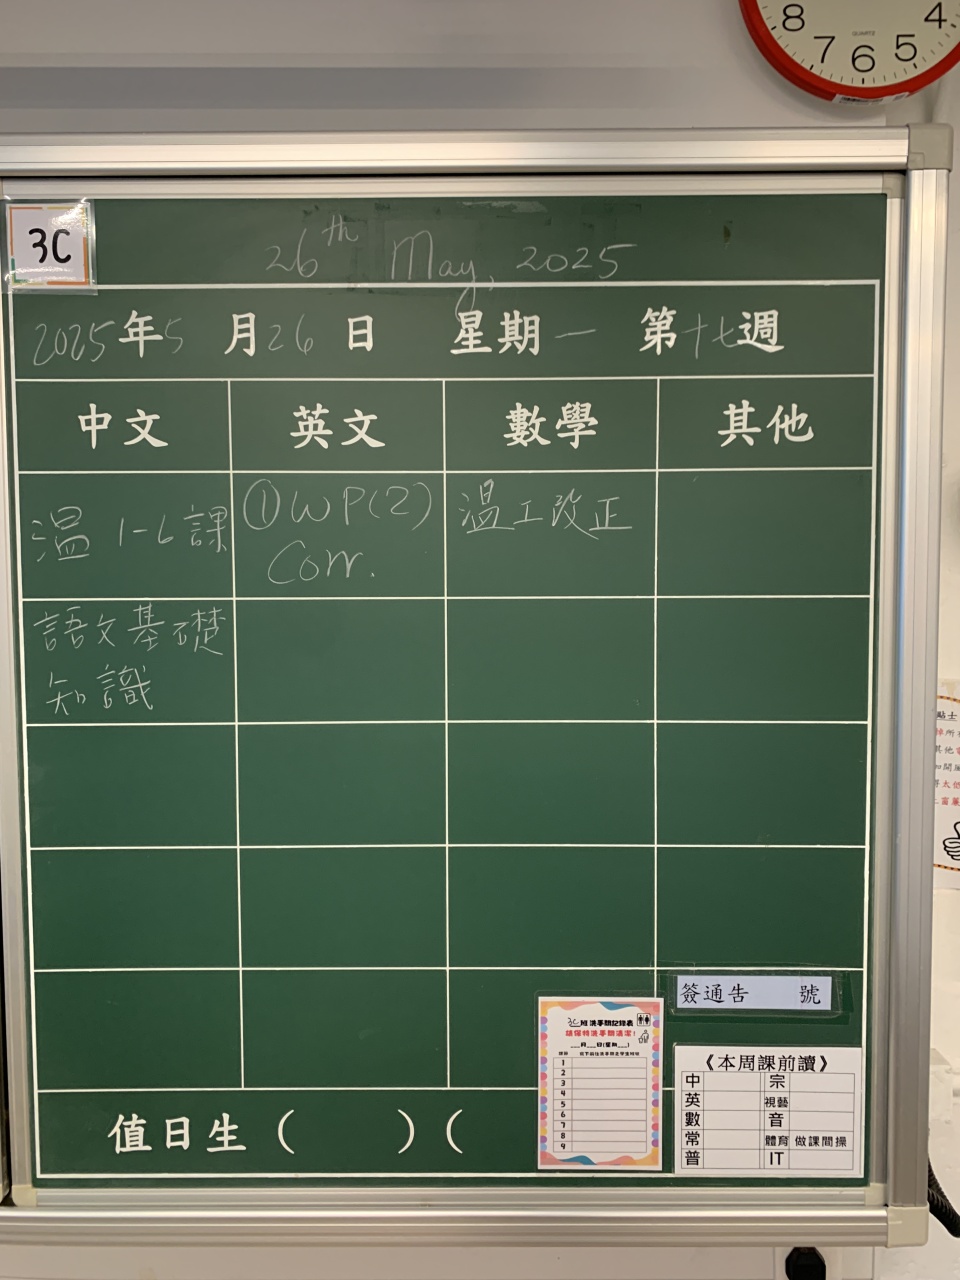 8 7 6 5 4
QUARTZ
3C
26th May, 2025
2025年5月26日 星期一 第十七週
中文 英文 數學 其他
溫 1-6課 ①WP(2) Corr. 溫工改正
語文基礎
知識
簽通告 號
3C班洗手間記錄表
請保持洗手間清潔！
__月__日(星期__)
1
2
3
4
5
6
7
8
9
《本周課前讀》
中 宗
英 視藝
數 音
常 體育 做課間操
普 IT
值日生（ ）（
貼士